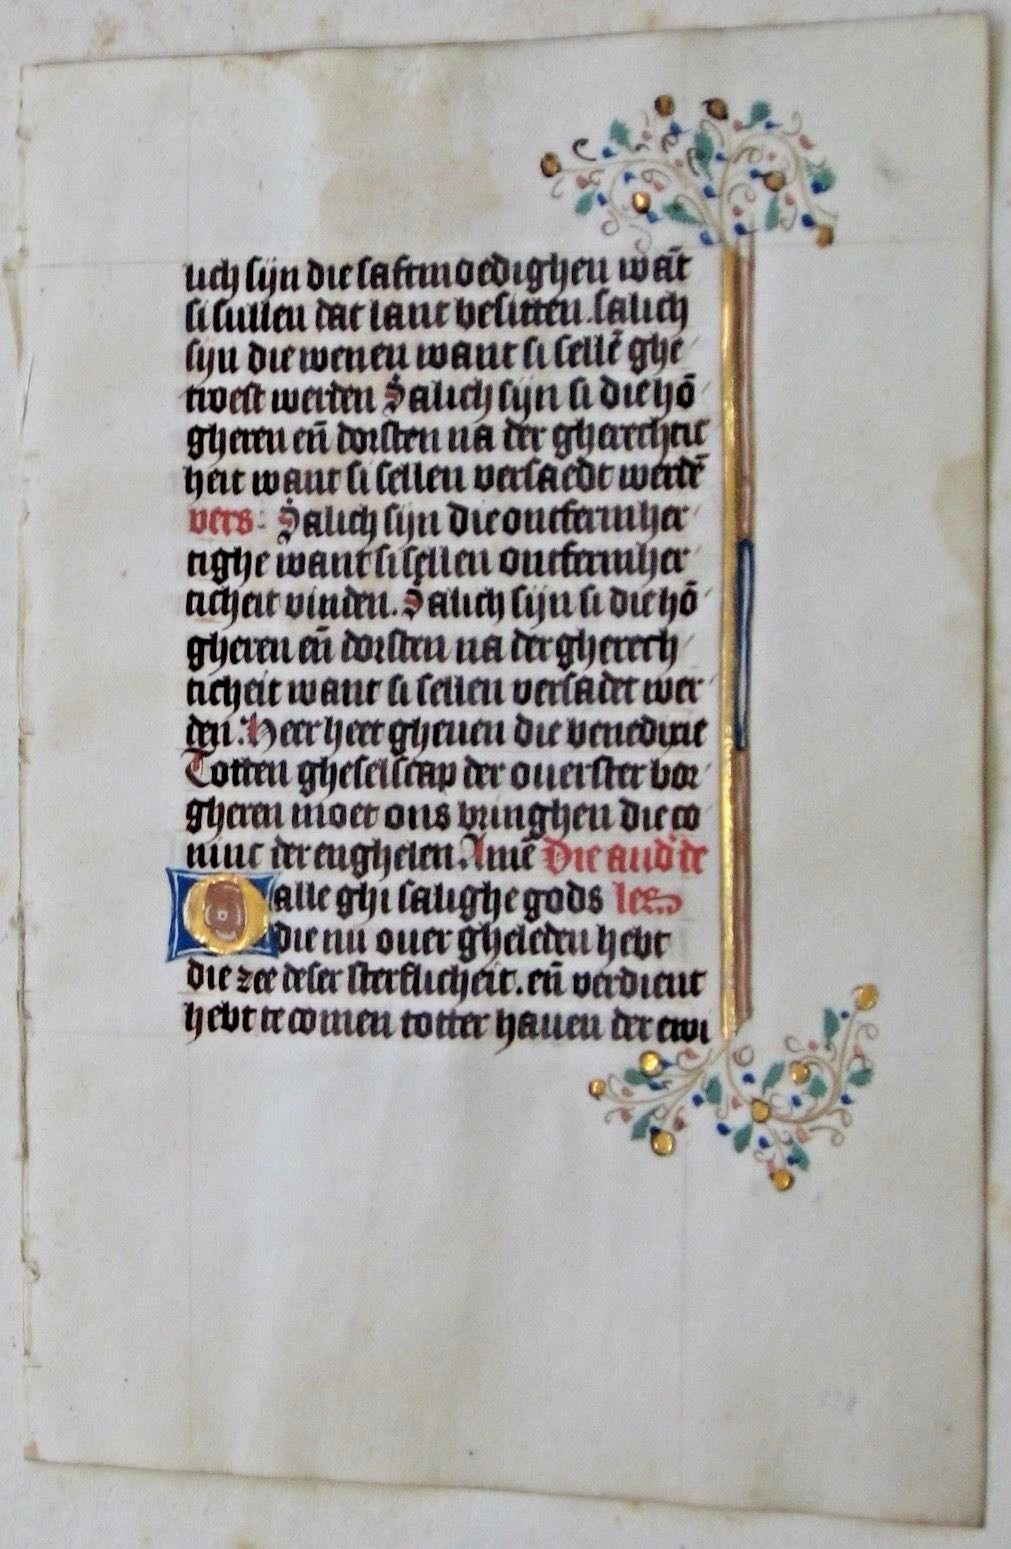 lich sijn die saftmoedighen wāt
si sullen dat lant besitten. salich
sijn die wenen want si sellē ghe
troest werden Salich sijn si die hō
gheren eñ dorsten na der gherechtic
heit want si sellen versaedt werdē
vers: Salich sijn die ontfermher
tighe want si sellen ontfermher
ticheit vinden. Salich sijn si die hō
gheren eñ dorsten na der gherech
ticheit want si sellen versadet wer
den. Heer heer gheuen die benedixie
Totten gheselscap der ouerster bor
gheren moet ons bringhen die co
ninc der enghelen. Amē Die and' de
O alle ghi salighe gods les
die nu ouer gheleden hebt
die zee deser sterflicheit. eñ verdient
hebt te comen totter hauen der ewi